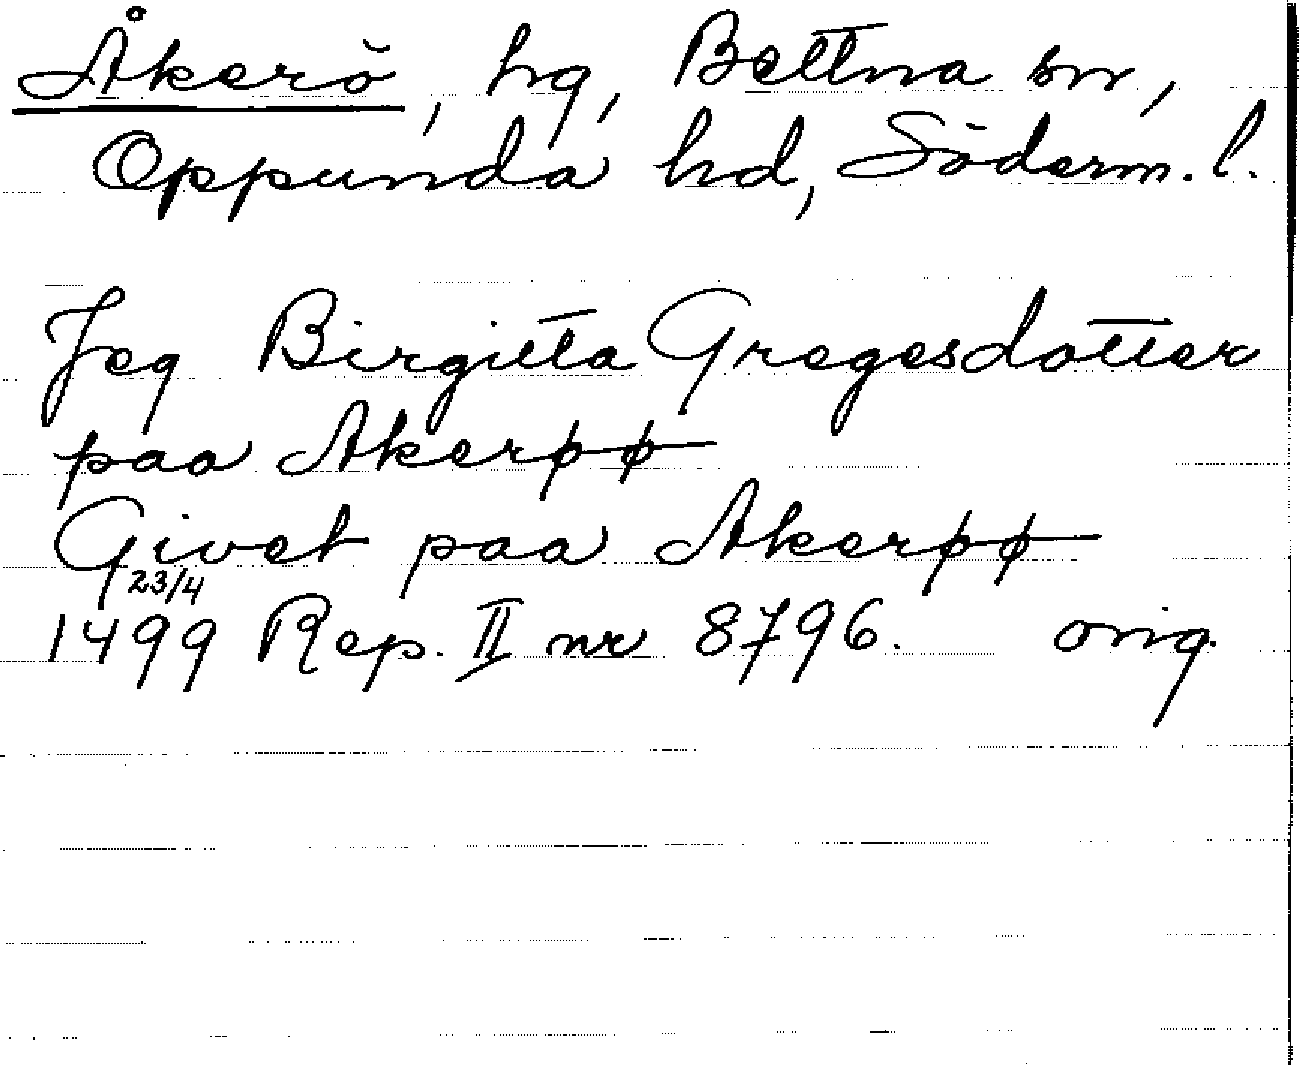 Åkerö, hg, Bettna sn,
Oppunda hd, Söderm. l.
Jeg Birgitta Gregesdotter
paa Akerøø
Givet paa Akerøø
23/4
1499 Rep. II nr 8796. orig.